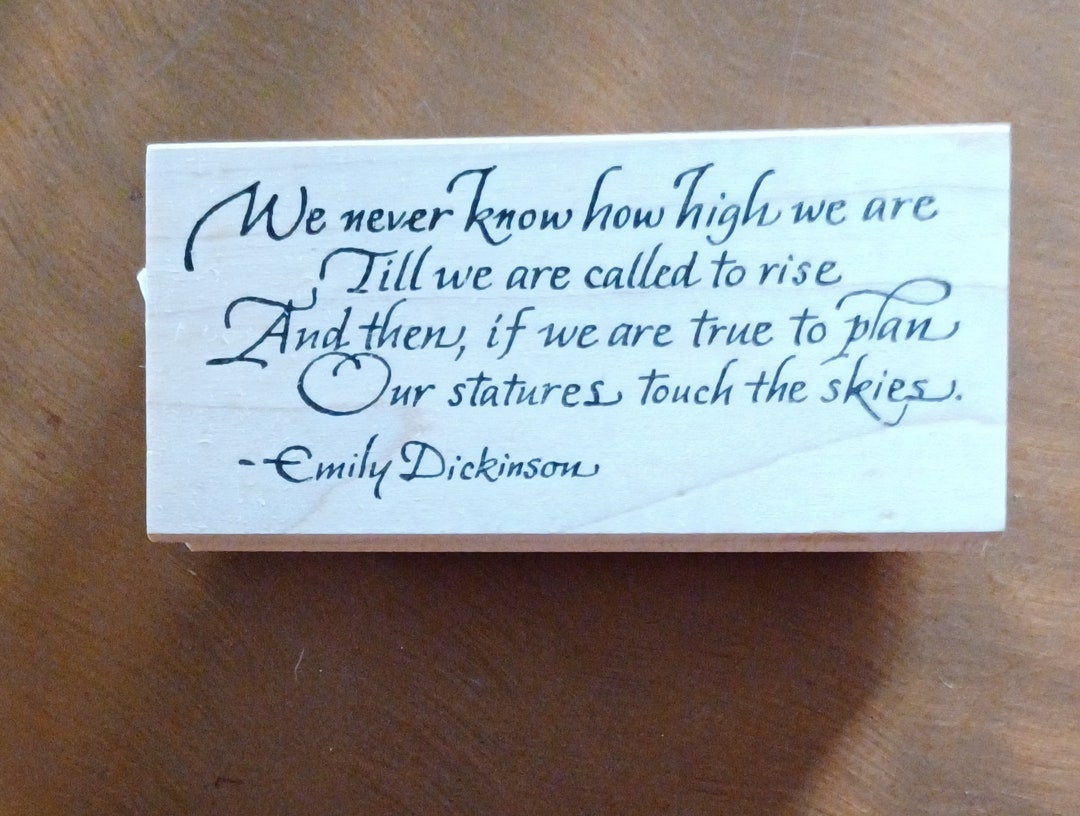 We never know how high we are
Till we are called to rise
And then, if we are true to plan
Our statures touch the skies.
-Emily Dickinson